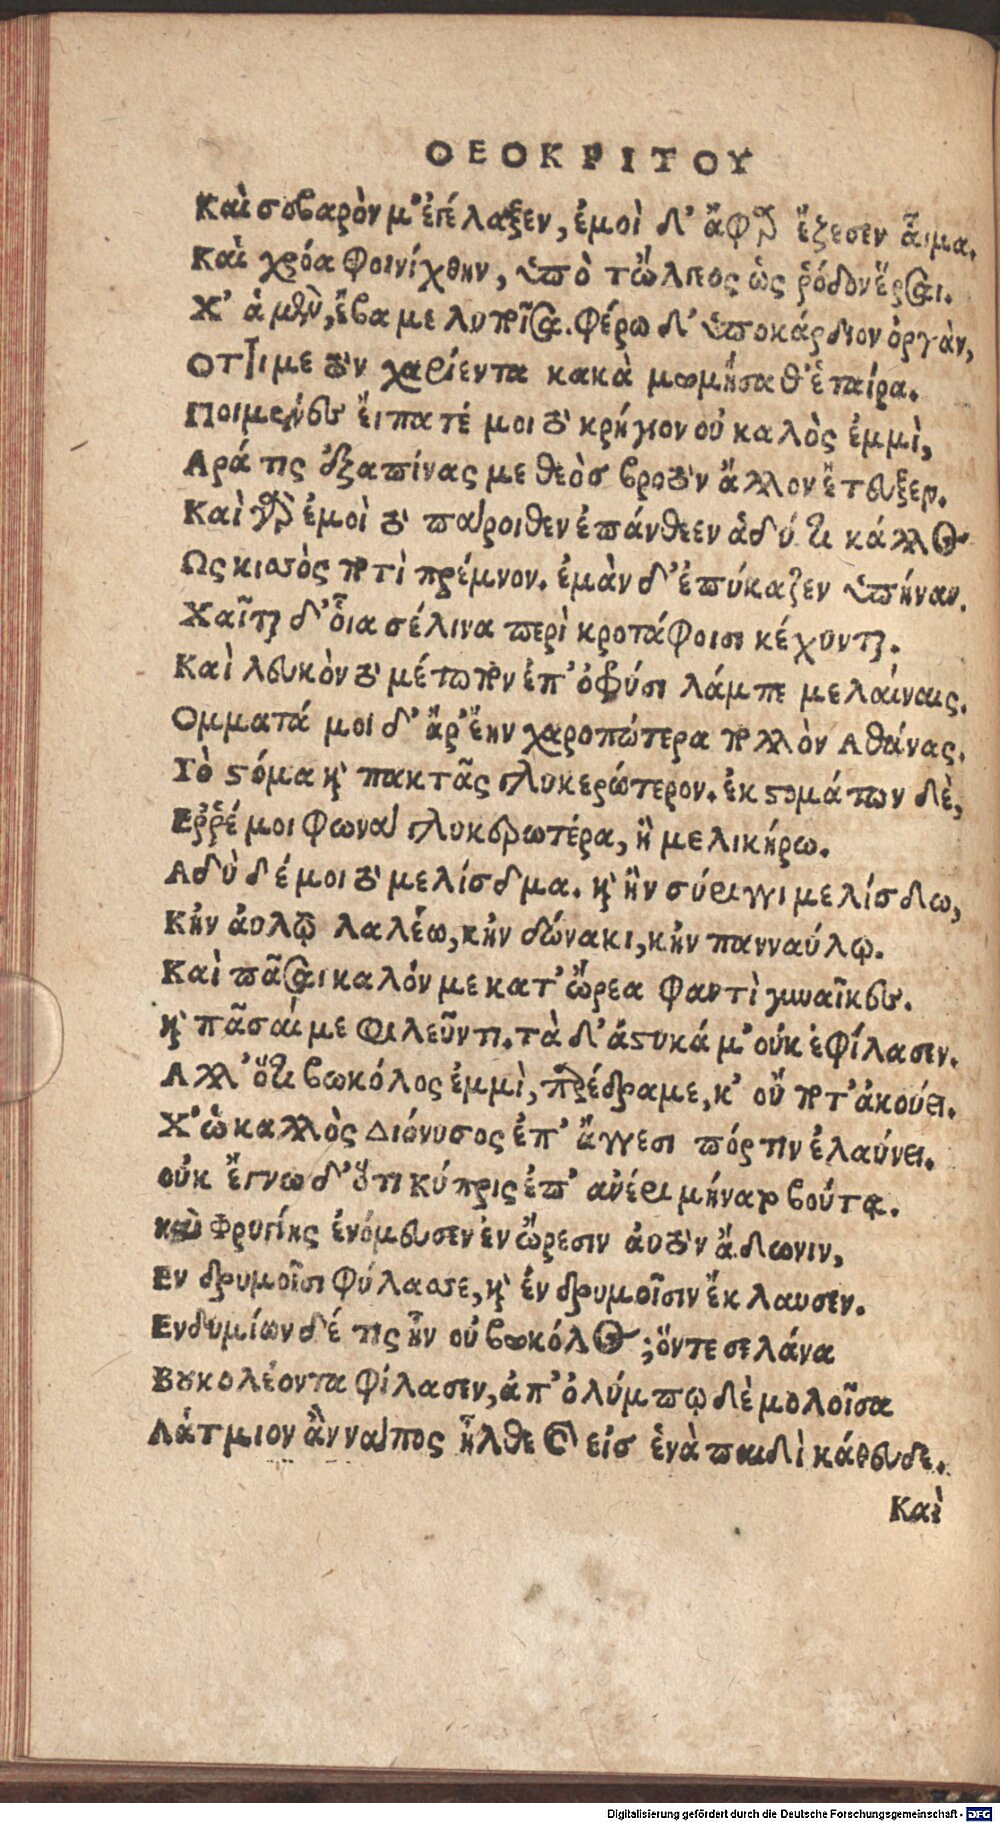 ΘΕΟΚΡΙΤΟΥ
Καὶ σοβαρὸν μ' ἐγέλαξεν, ἐμοὶ δ' ἄφαρ ἔζεσεν αἷμα.
Καὶ χρόα φοινίχθην, ὑπὸ τὤλγεος ὡς ῥόδον ἕρσαι.
Χ' ἁ μὲν, ἔβα με λιποῖσα. φέρω δ' ὑποκάρδιον ὀργὰν,
Οττι με τὸν χαρίεντα κακὰ μωμήσαθ' ἑταίρα.
Ποιμένες εἴπατέ μοι τὸ κρήγυον οὐ καλὸς ἐμμὶ,
Αρά τις ἐξαπίνας με θεὸσ βροτὸν ἄλλον ἔτευξεν.
Καὶ γὰρ ἐμοὶ τὸ πάροιθεν ἐπάνθεεν ἁδύ τι κάλλος
Ως κισσὸς ποτὶ πρέμνον. ἐμὰν δ' ἐπύκαζεν ὑπήναν.
Χαῖται δ' οἷα σέλινα περὶ κροτάφοισι κέχυνται.
Καὶ λευκὸν τὸ μέτωπον ἐπ' ὀφρύσι λάμπε μελαίναις.
Ομματά μοι δ' ἄρ' ἔην χαροπώτερα πολλὸν Αθάνας.
Τὸ στόμα καὶ πακτᾶς γλυκερώτερον. ἐκ στομάτων δὲ,
Ερῥέ μοι φωνὰ γλυκερωτέρα, ἢ μελικήρω.
Αδὺ δέ μοι τὸ μέλισδμα. καὶ ἢν σύριγγι μελίσδω,
Κἢν ἀυλῷ λαλέω, κἢν δώνακι, κἢν πανναύλῳ.
Καὶ πᾶσαι καλόν με κατ' ὤρεα φαντὶ γυναῖκες.
καὶ πᾶσαί με φιλεῦντι. τὰ δ' ἀστυκά μ' οὐκ ἐφίλασεν.
Αλλ' ὅτι βωκόλος ἐμμὶ, παρέδραμε, κ' οὔ ποτ' ἀκούει.
Χ' ὡ καλλὸς Διόνυσος ἐπ' ἄγγεσι πόρτιν ἐλαύνει.
οὐκ ἔγνω δ' ὅτι Κύπρις ἐπ' ἀνέρι μήνατο βούτᾳ.
καὶ Φρυγίης ἐνόμευσεν ἐν ὤρεσιν ἀυτὸν ἄδωνιν,
Εν δρυμοῖσι φύλασσε, καὶ ἐν δρυμοῖσιν ἔκλαυσεν.
Ενδυμίων δέ τις ἦν οὐ βωκόλος; ὅντε σελάνα
Βουκολέοντα φίλασεν, ἀπ' ὀλύμπω δὲ μολοῖσα
Λάτμιον ἂν νάπος ἦλθε καὶ εἰσ ἑνὰ παιδὶ κάθευδε.
Καὶ
Digitalisierung gefördert durch die Deutsche Forschungsgemeinschaft - DFG